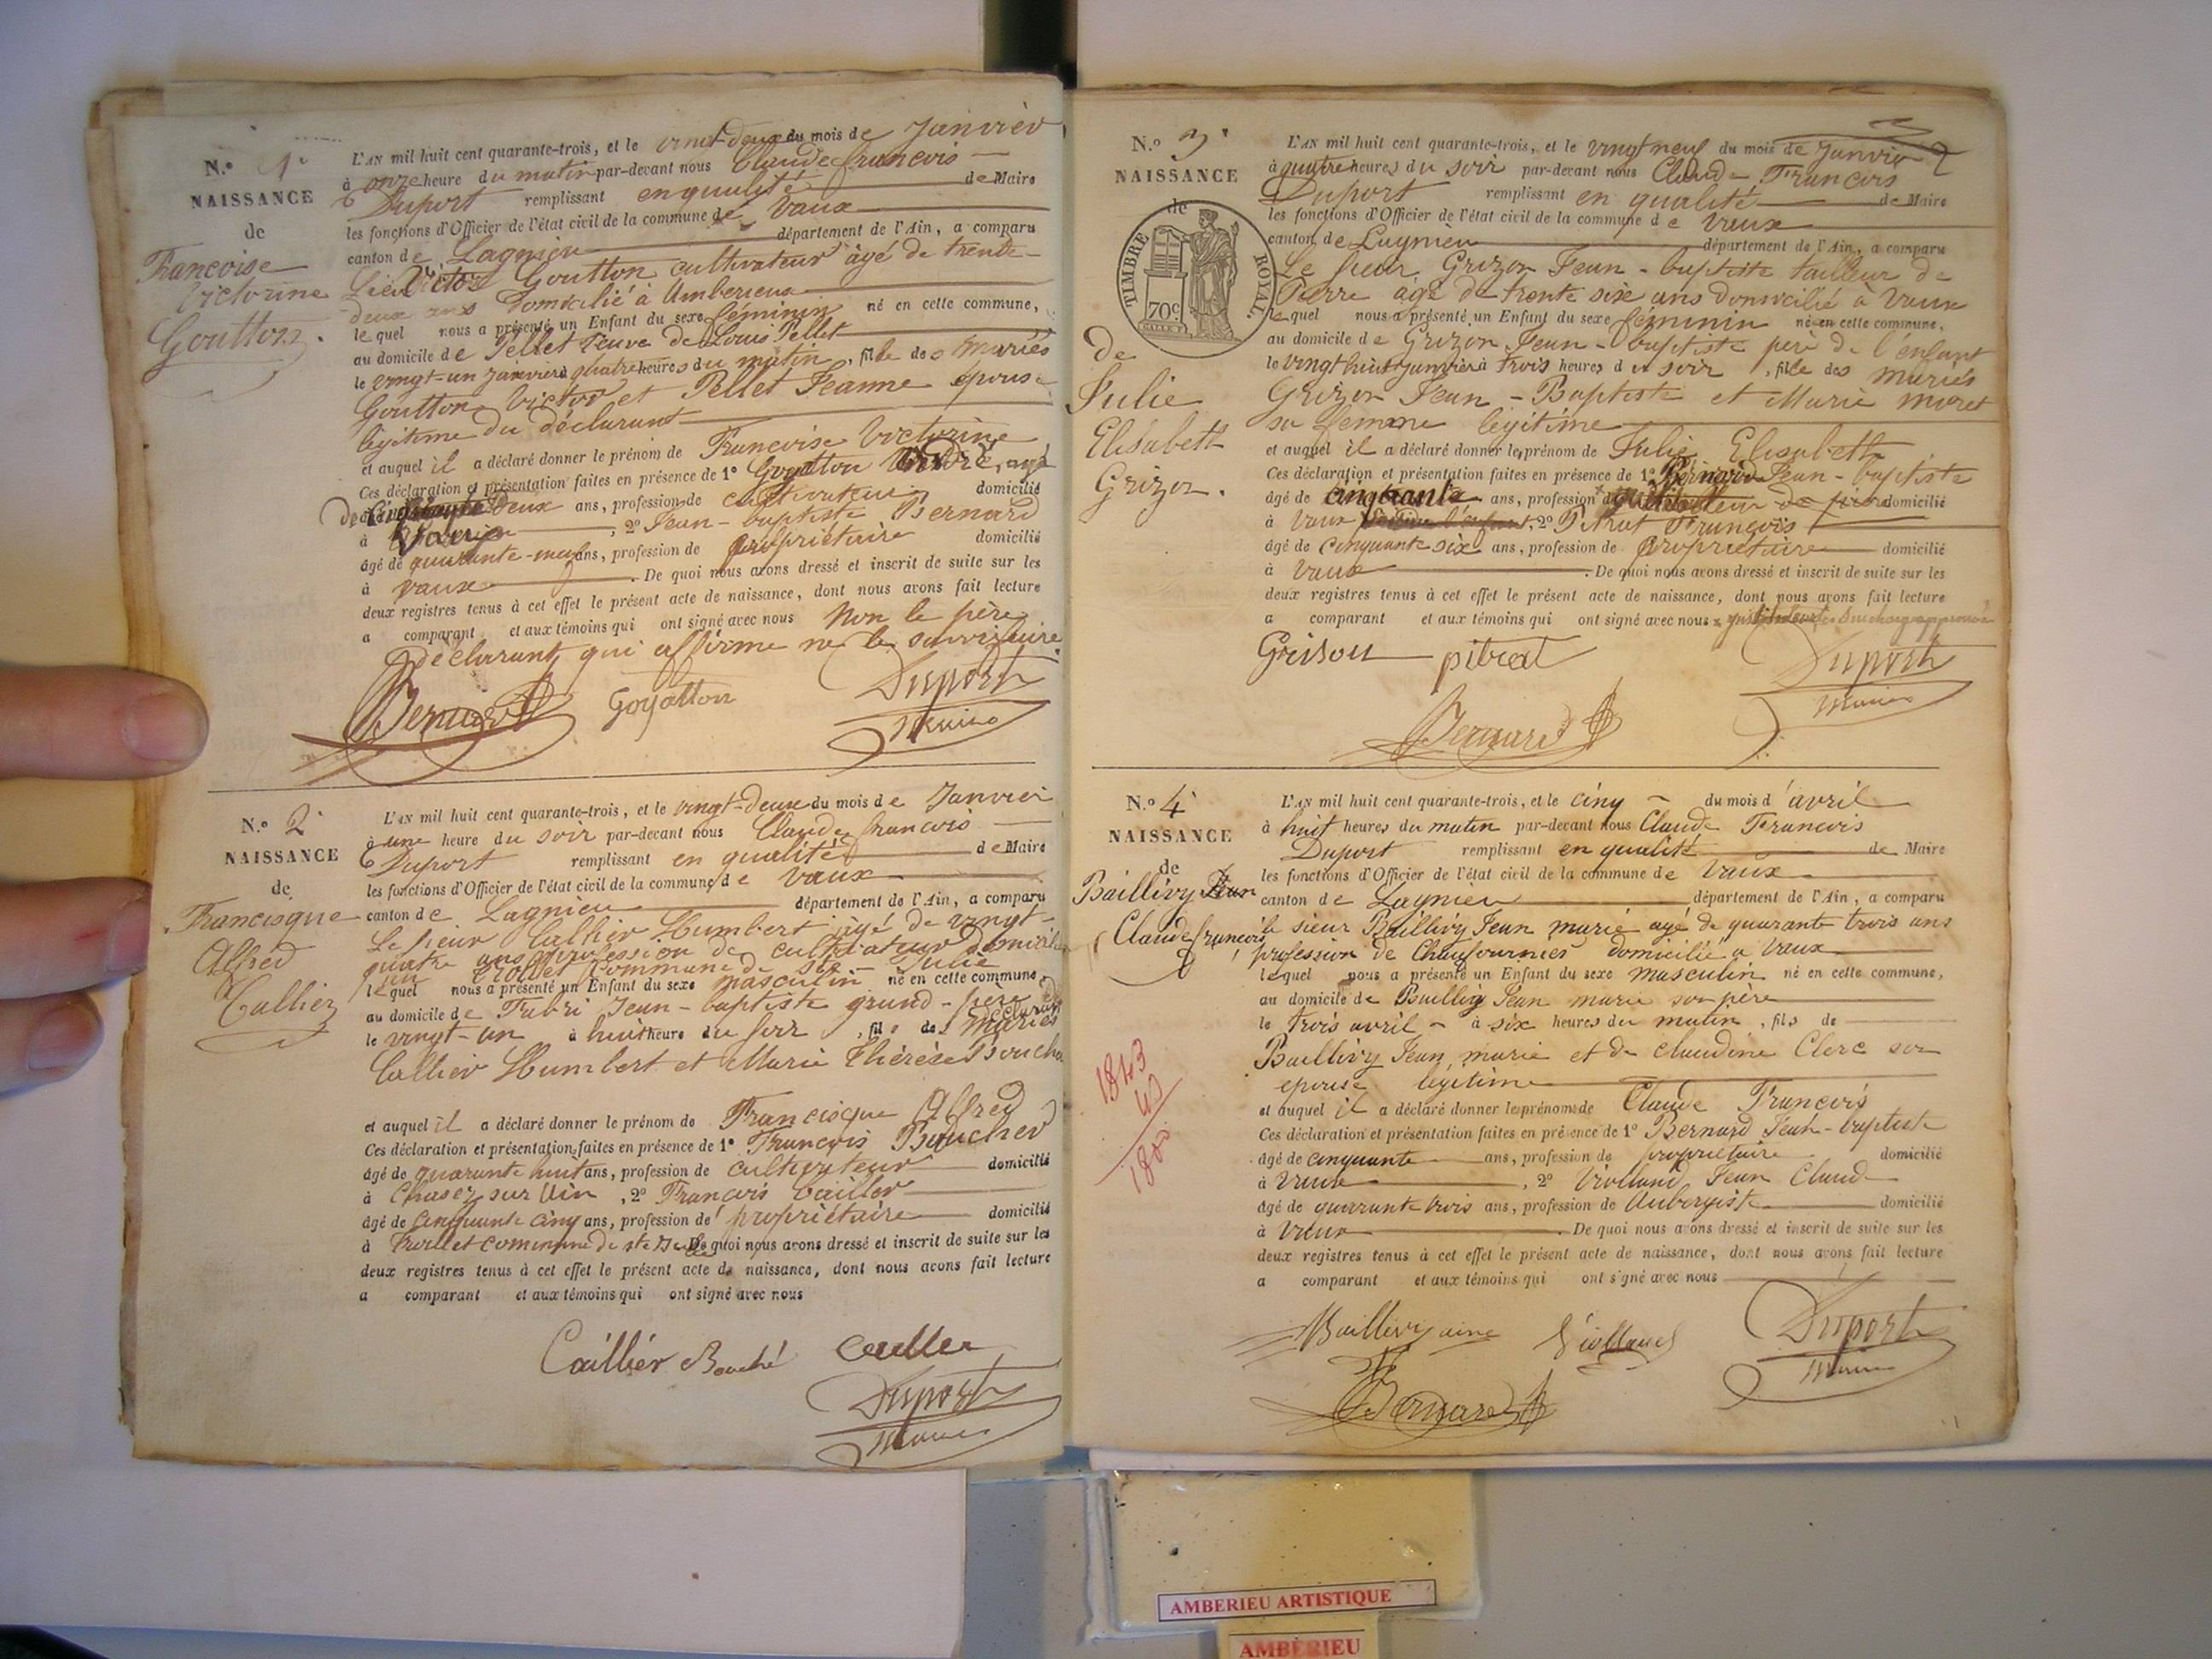 N.º 1
NAISSANCE
de
Francoise
Victorine
Goutton.
L'AN mil huit cent quarante-trois, et le vingt-deux du mois de Janvier
à onze heure du matin par-devant nous Claude francois
Duport remplissant en qualité de Maire
les fonctions d'Officier de l'état civil de la commune de Vaux
canton de Lagnieu département de l'Ain, a comparu
Victor Goutton cultivateur âgé de trente-
deux ans Domicilié à Amberieux
le quel nous a présenté un Enfant du sexe féminin né en cette commune,
au domicile de Pellet Veuve de Louis Pellet
le vingt-un janvier à quatre heures du matin, fille des mariés
Goutton Victor et Pellet Jeanne épouse
légitime du déclarant
et auquel il a déclaré donner le prénom de Francoise Victorine
Ces déclaration et présentation faites en présence de 1º Goyatton agé
de deux ans, profession de cultivateur domicilié
à , 2º Jean-baptiste Bernard
âgé de quarante-neuf ans, profession de propriétaire domicilié
à Vaux . De quoi nous avons dressé et inscrit de suite sur les
deux registres tenus à cet effet le présent acte de naissance, dont nous avons fait lecture
a comparant et aux témoins qui ont signé avec nous Non le père
déclarant qui affirme ne le savoir faire.
Bernard Goyatton Duport
Maire
N.º 2
NAISSANCE
de
Francisque
Alfred
Callier
L'AN mil huit cent quarante-trois, et le vingt-deux du mois de Janvier
à une heure du soir par-devant nous Claude francois
Duport remplissant en qualité de Maire
les fonctions d'Officier de l'état civil de la commune de Vaux
canton de Lagnieu département de l'Ain, a comparu
Le sieur Callier Humbert âgé de vingt-
quatre ans profession de cultivateur domicilié
commune de Ste Julie
le quel nous a présenté un Enfant du sexe masculin né en cette commune,
au domicile de Fabri Jean-baptiste grand-père
le vingt-un à huit heure du soir, fils des mariés
Callier Humbert et Marie Thérèse Boucher
et auquel il a déclaré donner le prénom de Francisque Alfred
Ces déclaration et présentation faites en présence de 1º Francois Boucher
âgé de quarante huit ans, profession de cultivateur domicilié
à Chasey sur Ain, 2º Francois Caillier
âgé de cinquante cinq ans, profession de propriétaire domicilié
à Trollet commune de ste Julie De quoi nous avons dressé et inscrit de suite sur les
deux registres tenus à cet effet le présent acte de naissance, dont nous avons fait lecture
a comparant et aux témoins qui ont signé avec nous
Caillier Bouché
Duport
Maire
N.º 3
NAISSANCE
de
TIMBRE ROYAL
70c
de
Julie
Elisabeth
Grizon.
L'AN mil huit cent quarante-trois, et le vingt neuf du mois de Janvier
à quatre heures du soir par-devant nous Claude Francois
Duport remplissant en qualité de Maire
les fonctions d'Officier de l'état civil de la commune de Vaux
canton de Lagnieu département de l'Ain, a comparu
Le sieur Grizon Jean-baptiste tailleur de
Pierre agé de trente six ans domicilié à Vaux
le quel nous a présenté un Enfant du sexe féminin né en cette commune,
au domicile de Grizon Jean-baptiste père de l'enfant
le vingt huit janvier à trois heures du soir, fille des mariés
Grizon Jean-Baptiste et Marie Moret
sa femme legitime
et auquel il a déclaré donner le prénom de Julie Elisabeth
Ces déclaration et présentation faites en présence de 1º Bernard Jean-baptiste
âgé de cinquante ans, profession domicilié
à Vaux , 2º Pitrat Francois
âgé de cinquante six ans, profession de propriétaire domicilié
à Vaux . De quoi nous avons dressé et inscrit de suite sur les
deux registres tenus à cet effet le présent acte de naissance, dont nous avons fait lecture
a comparant et aux témoins qui ont signé avec nous
Grison pitrat Duport
Maire
Bernard
N.º 4
NAISSANCE
de
Baillivy
Claude francois
1843
43
1800
L'AN mil huit cent quarante-trois, et le cinq du mois d'avril
à huit heures du matin par-devant nous Claude Francois
Duport remplissant en qualité de Maire
les fonctions d'Officier de l'état civil de la commune de Vaux
canton de Lagnieu département de l'Ain, a comparu
le sieur Baillivy Jean marie agé de quarante trois ans
profession de Chaufournier domicilié à Vaux
lequel nous a présenté un Enfant du sexe masculin né en cette commune,
au domicile de Baillivy Jean marie son père
le trois avril à six heures du matin, fils de
Baillivy Jean marie et de Claudine Clerc son
epouse légitime
et auquel il a déclaré donner les prénoms de Claude Francois
Ces déclaration et présentation faites en présence de 1º Bernard Jean-baptiste
âgé de cinquante ans, profession de propriétaire domicilié
à Vaux , 2º Violland Jean Claude
âgé de quarante trois ans, profession de Aubergiste domicilié
à Vaux . De quoi nous avons dressé et inscrit de suite sur les
deux registres tenus à cet effet le présent acte de naissance, dont nous avons fait lecture
a comparant et aux témoins qui ont signé avec nous
Baillivy ainé Violland Duport
Maire
Bernard
AMBERIEU ARTISTIQUE
AMBÉRIEU